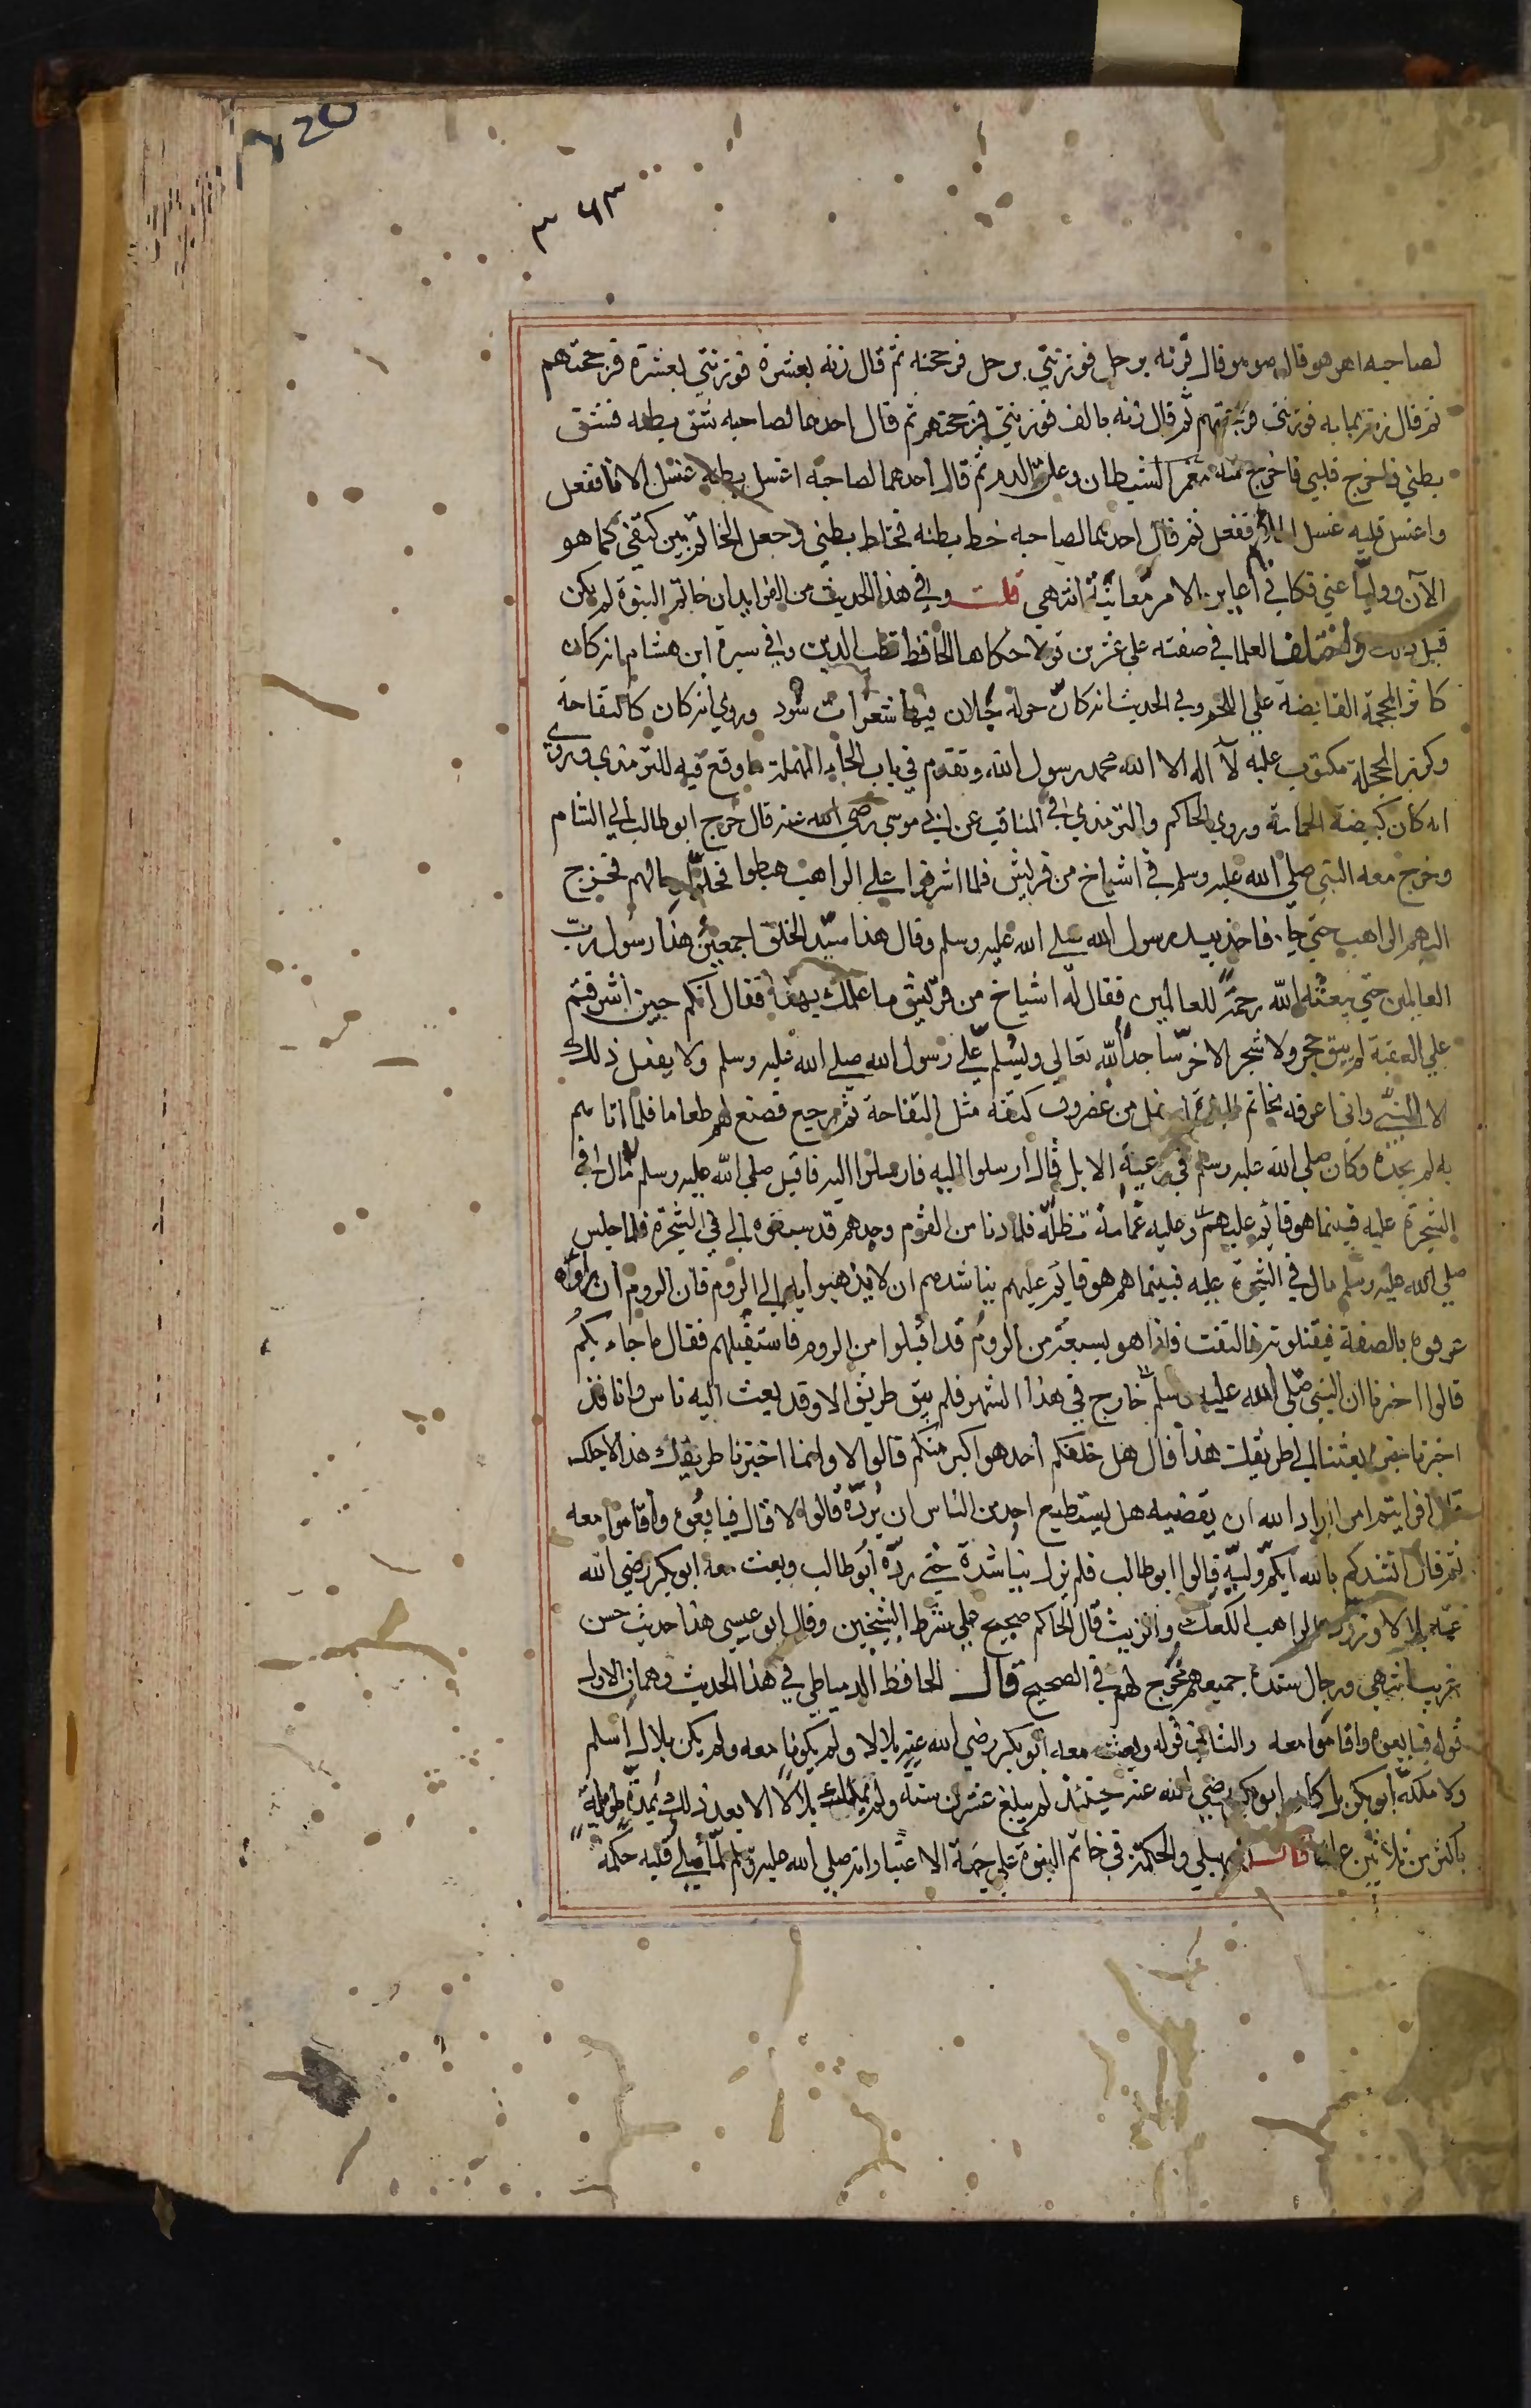 ٣٦٣
لصاحبه اهو هو قال هو هو قال فزنه برجل فوزنني برجل فرجحته ثم قال زنه بعشرة فوزنني بعشرة فرجحتهم
ثم قال زنه بمايه فوزنني فرجحتهم ثم قال زنه بالف فوزنني فرجحتهم ثم قال احدهما لصاحبه شق بطنه فشق
بطني فاخرج قلبي فاخرج منه مغمز الشيطان وعلق الدم ثم قال احدهما لصاحبه اغسل بطنه غسل الانا ففعل
واغسل قلبه غسل ففعل ثم قال احدهما لصاحبه خط بطنه فخاط بطني وجعل الخاتم بين كتفي كما هو
الآن ووليا عني فكاني اعاين الامر معاينة انتهي قلت وفي هذا الحديث من الفوايد ان خاتم النبوة لم يكن
قبل ذلك واختلف العلما في صفته علي عشرين قولا حكاها الحافظ قطب الدين وفي سيرة ابن هشام انه كان
كاثر المحجمة القابضة علي اللحم وفي الحديث انه كان حوله خيلان فيها شعرات سود وروي انه كان كالتفاحة
وكزر الحجلة مكتوب عليه لا اله الا الله محمد رسول الله وتقدم في باب الحاء المهملة ما وقع فيه للترمذي وروي
انه كان كبيضة الحمامة وروي الحاكم والترمذي في المناقب عن ابي موسي رضي الله عنه قال خرج ابو طالب الي الشام
وخرج معه النبي صلي الله عليه وسلم في اشياخ من قريش فلما اشرفوا علي الراهب هبطوا فحلوا رحالهم فخرج
اليهم الراهب حتي جاء فاخذ بيد رسول الله صلي الله عليه وسلم وقال هذا سيد الخلق اجمعين هذا رسول رب
العالمين حتي يبعثه الله رحمة للعالمين فقال له اشياخ من قريش ما علمك بهذا فقال انكم حين اشرفتم
علي العقبة لم يبق حجر ولا شجر الا خر ساجدا لله تعالي ويسلم علي رسول الله صلي الله عليه وسلم ولا يفعل ذلك
الا لنبي واني اعرفه بخاتم النبوة اسفل من غضروف كتفه مثل التفاحة ثم رجع فصنع لهم طعاما فلما اتاهم
به لم يجده وكان صلي الله عليه وسلم في رعية الابل قال ارسلوا اليه فارسلوا اليه فاقبل صلي الله عليه وسلم مال في
الشجرة عليه فبينما هو قايم عليهم وعليه غمامة تظله فلما دنا من القوم وجدهم قد سبقوه الي في الشجرة فلما جلس
صلي الله عليه وسلم مال في الشجرة عليه فبينما هم هو قايم عليهم يناشدهم ان لا يذهبوا به الي الروم فان الروم ان راوه
عرفوه بالصفة فيقتلونه فالتفت فاذا هو بسبعة من الروم قد اقبلوا من الروم فاستقبلهم فقال ما جاء بكم
قالوا اخبرنا ان النبي صلي الله عليه وسلم خارج في هذا الشهر فلم يبق طريق الا وقد بعث اليه ناس وانا قد
اخبرنا بعثنا الي طريقك هذا قال هل خلفكم احد هو اكبر منكم قالوا لا وانما اخترنا طريقك هذا لاجلك
قال افرايتم امرا اراد الله ان يقضيه هل يستطيع احد من الناس ان يرده قالوا لا قال فبايعوه واقاموا معه
ثم قال انشدكم بالله ايكم وليه قالوا ابو طالب فلم يزل يناشده حتي رده ابو طالب وبعث معه ابو بكر رضي الله
عنه بلالا وزوده الراهب الكعك والزيت قال الحاكم صحيح علي شرط الشيخين وقال ابو عيسي هذا حديث حسن
غريب انتهي ورجال سنده جميعهم مخرج لهم في الصحيح قال الحافظ الدمياطي في هذا الحديث وهمان الاول
قوله فبايعوه واقاموا معه والثاني قوله وبعث معه ابو بكر رضي الله عنه بلالا ولم يكونا معه ولم يكن بلال اسلم
ولا ملكه ابو بكر بل كان ابو بكر رضي الله عنه حينئذ لم يبلغ عشرين سنة ولم يملك بلالا الا بعد ذلك بمدة طويلة
باكثر من ثلاثين عاما قال السهيلي والحكمة في خاتم النبوة علي جهة الاعتبار انه صلي الله عليه وسلم لما ملي قلبه حكمة